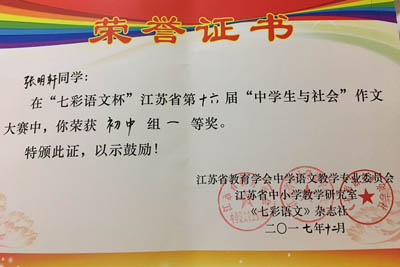 荣誉证书
张明轩同学：
在“七彩语文杯”江苏省第十六届“中学生与社会”作文
大赛中，你荣获 初中 组 一 等奖。
特颁此证，以示鼓励！
江苏省教育学会中学语文教学专业委员会
江苏省中小学教学研究室
《七彩语文》杂志社
二〇一七年十二月